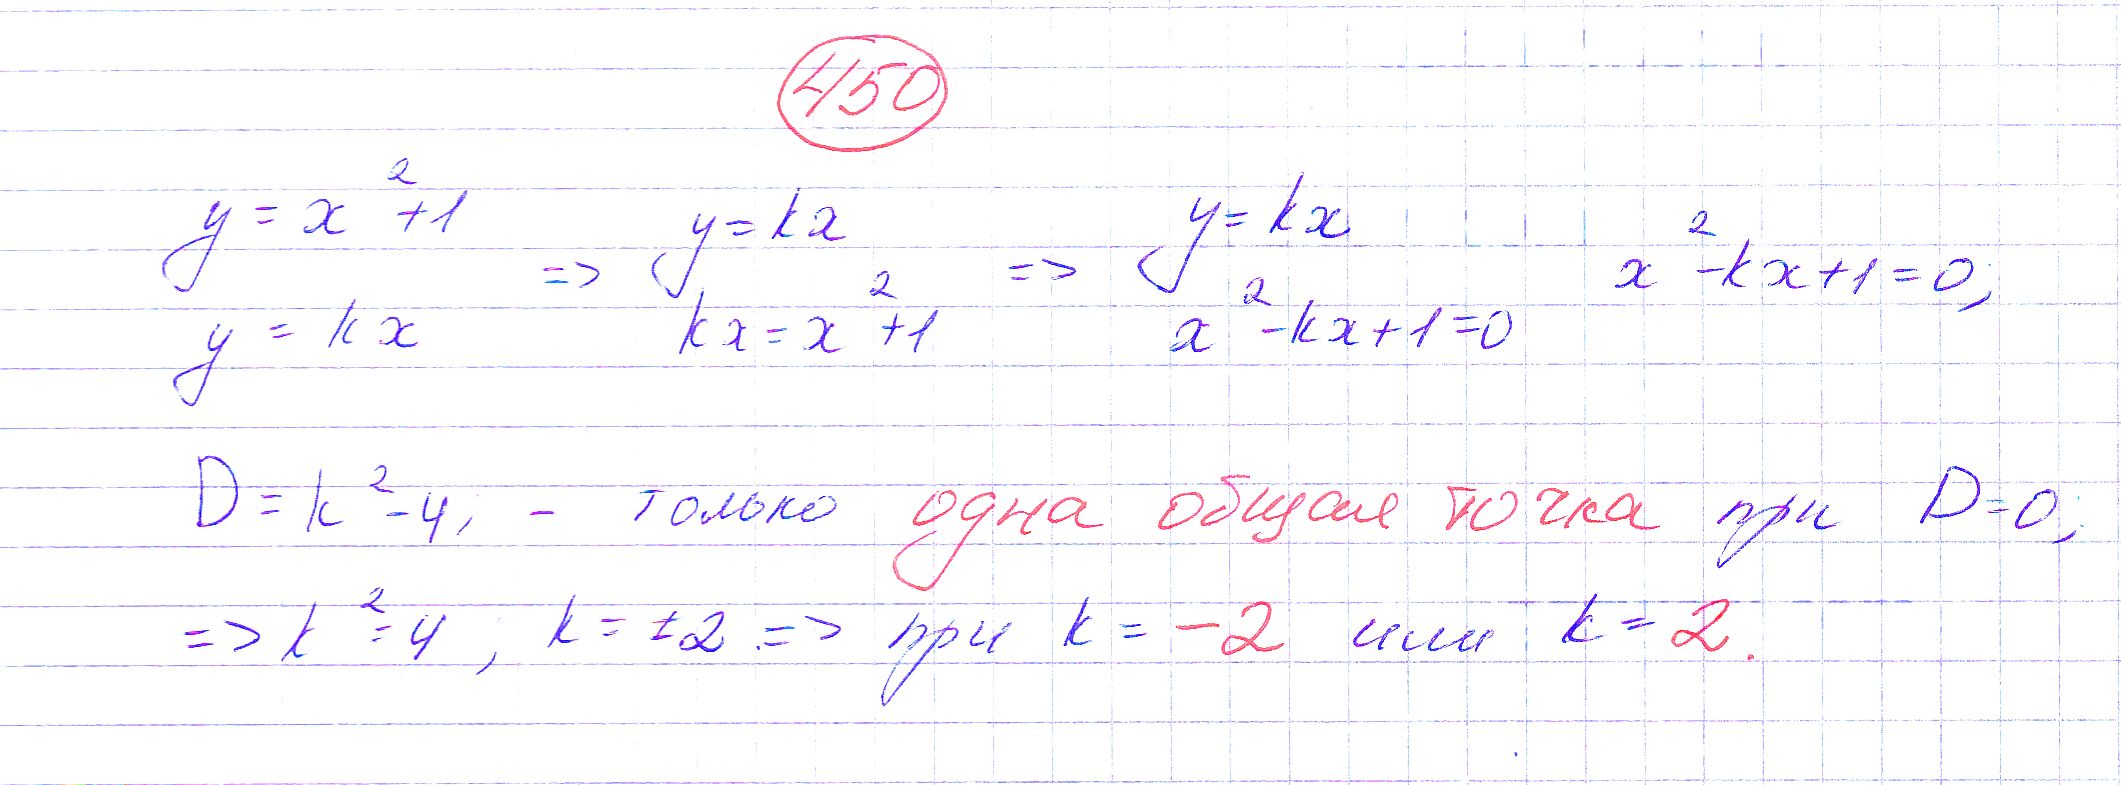 450
y = x² + 1 => y = kx => y = kx x² - kx + 1 = 0,
y = kx kx = x² + 1 x² - kx + 1 = 0
D = k² - 4, - только одна общая точка при D = 0,
=> k² = 4, k = ±2 => при k = -2 или k = 2.